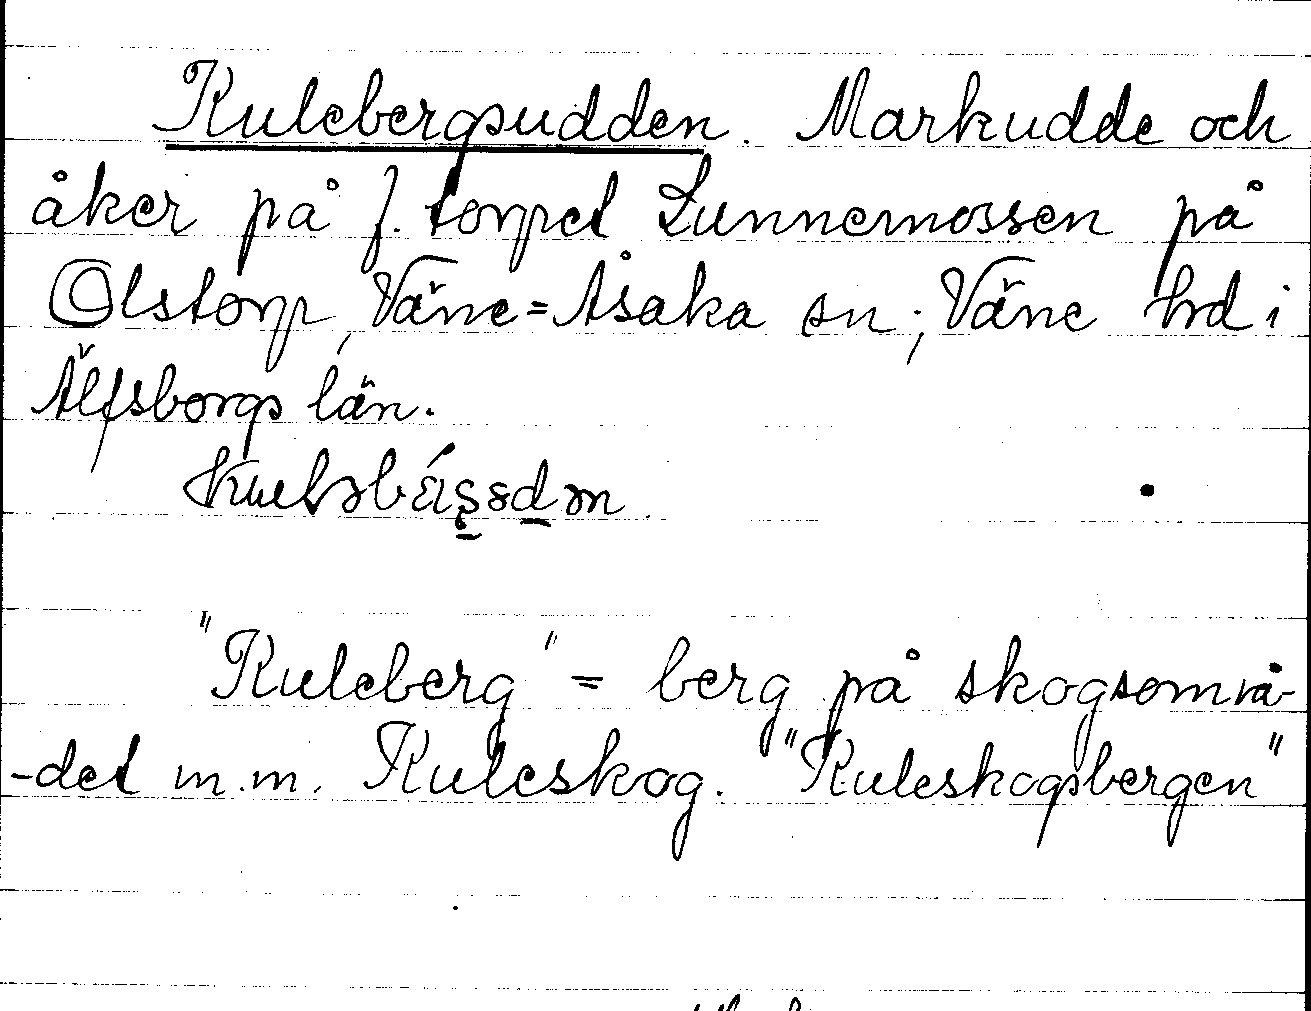 Kulebergsudden. Markudde och
åker på f. torpet Lunnemossen på
Olstorp, Väne=Åsaka sn; Väne hd i
Älfsborgs län.
"Kuleberg" = berg på skogsområ-
-det m.m. Kuleskog. "Kuleskogsbergen"